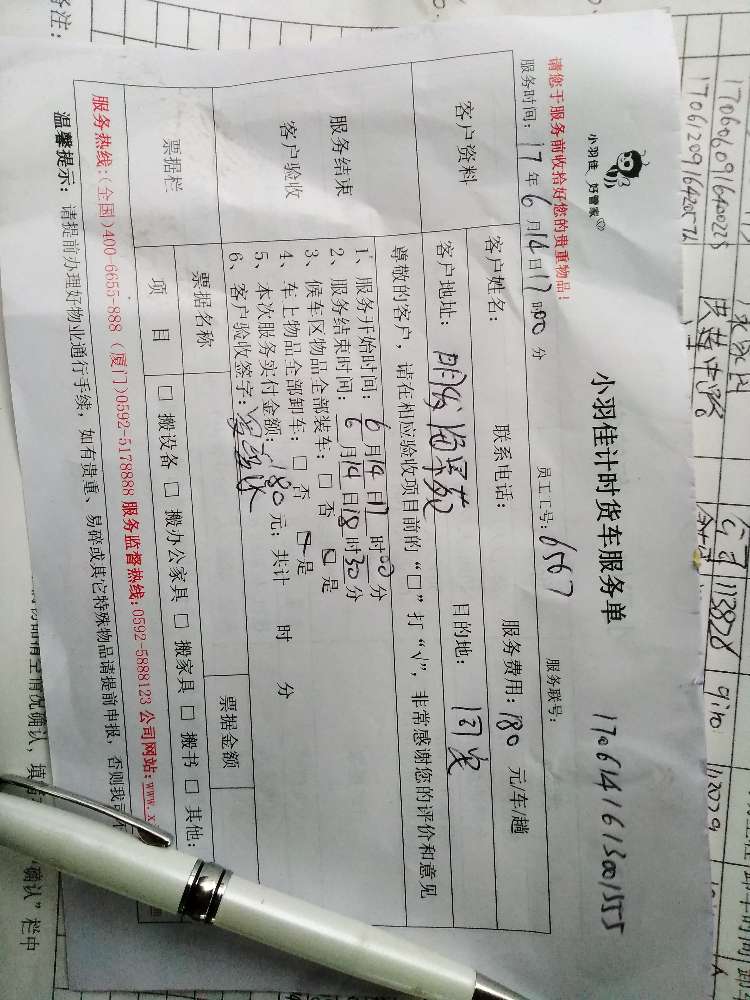 小羽佳 好管家
小羽佳计时货车服务单
17061416130015555
请您于服务前收拾好您的贵重物品!
服务时间: 17 年 6 月 14 日 17 时 00 分
员工工号: 6567
服务联号:
客户资料
客户姓名:
联系电话:
服务费用: 180 元/车/趟
客户地址: 明发海景苑
目的地: 同安
服务结束
客户验收
尊敬的客户, 请在相应验收项目前的“□”打“√”, 非常感谢您的评价和意见
1、服务开始时间: 6 月 14 日 17 时 00 分
2、服务结束时间: 6 月 14 日 18 时 30 分
3、候车区物品全部装车: □ 否 □ 是
4、车上物品全部卸车: □ 否 □ 是
5、本次服务实付金额: 180 元; 共计 时 分
6、客户验收签字:
票据栏
票据名称
票据金额
项 目
□ 搬设备 □ 搬办公家具 □ 搬家具 □ 搬书 □ 其他:
服务热线:(全国)400-6655-888 (厦门)0592-5178888 服务监督热线:0592-5888123 公司网站:www.x
温馨提示: 请提前办理好物业通行手续, 如有贵重、易碎或其它特殊物品请提前申报, 否则我司不
备注:
113828
9:10
113079
确认”栏中